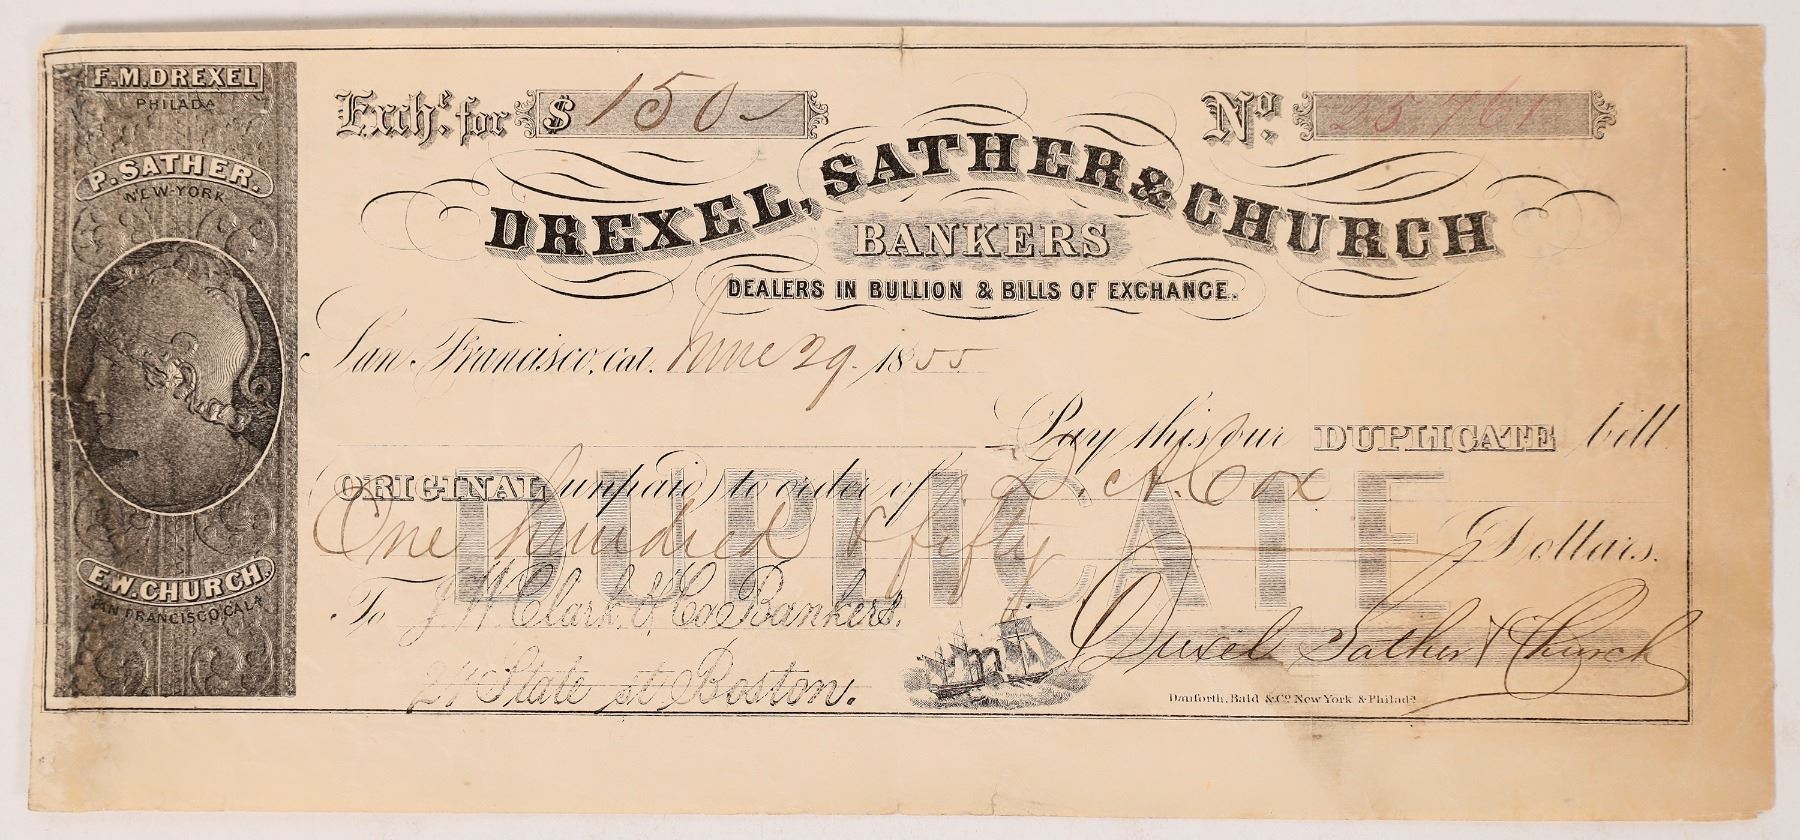 F.M.DREXEL
PHILADA
P. SATHER.
NEW-YORK
E.W. CHURCH.
SAN FRANCISCO, CALA
Exche. for $ 150
No. 25761
DREXEL, SATHER & CHURCH
BANKERS
DEALERS IN BULLION & BILLS OF EXCHANGE.
San Francisco, Cal. June 29. 1855
Pay this our DUPLICATE bill
ORIGINAL unpaid) to order of D. A. Cox
One hundred & fifty Dollars.
DUPLICATE
To J. W. Clark & Co Bankers.
State st Boston.
Drexel Sather & Church
Danforth, Bald & Co. New York & Philada.